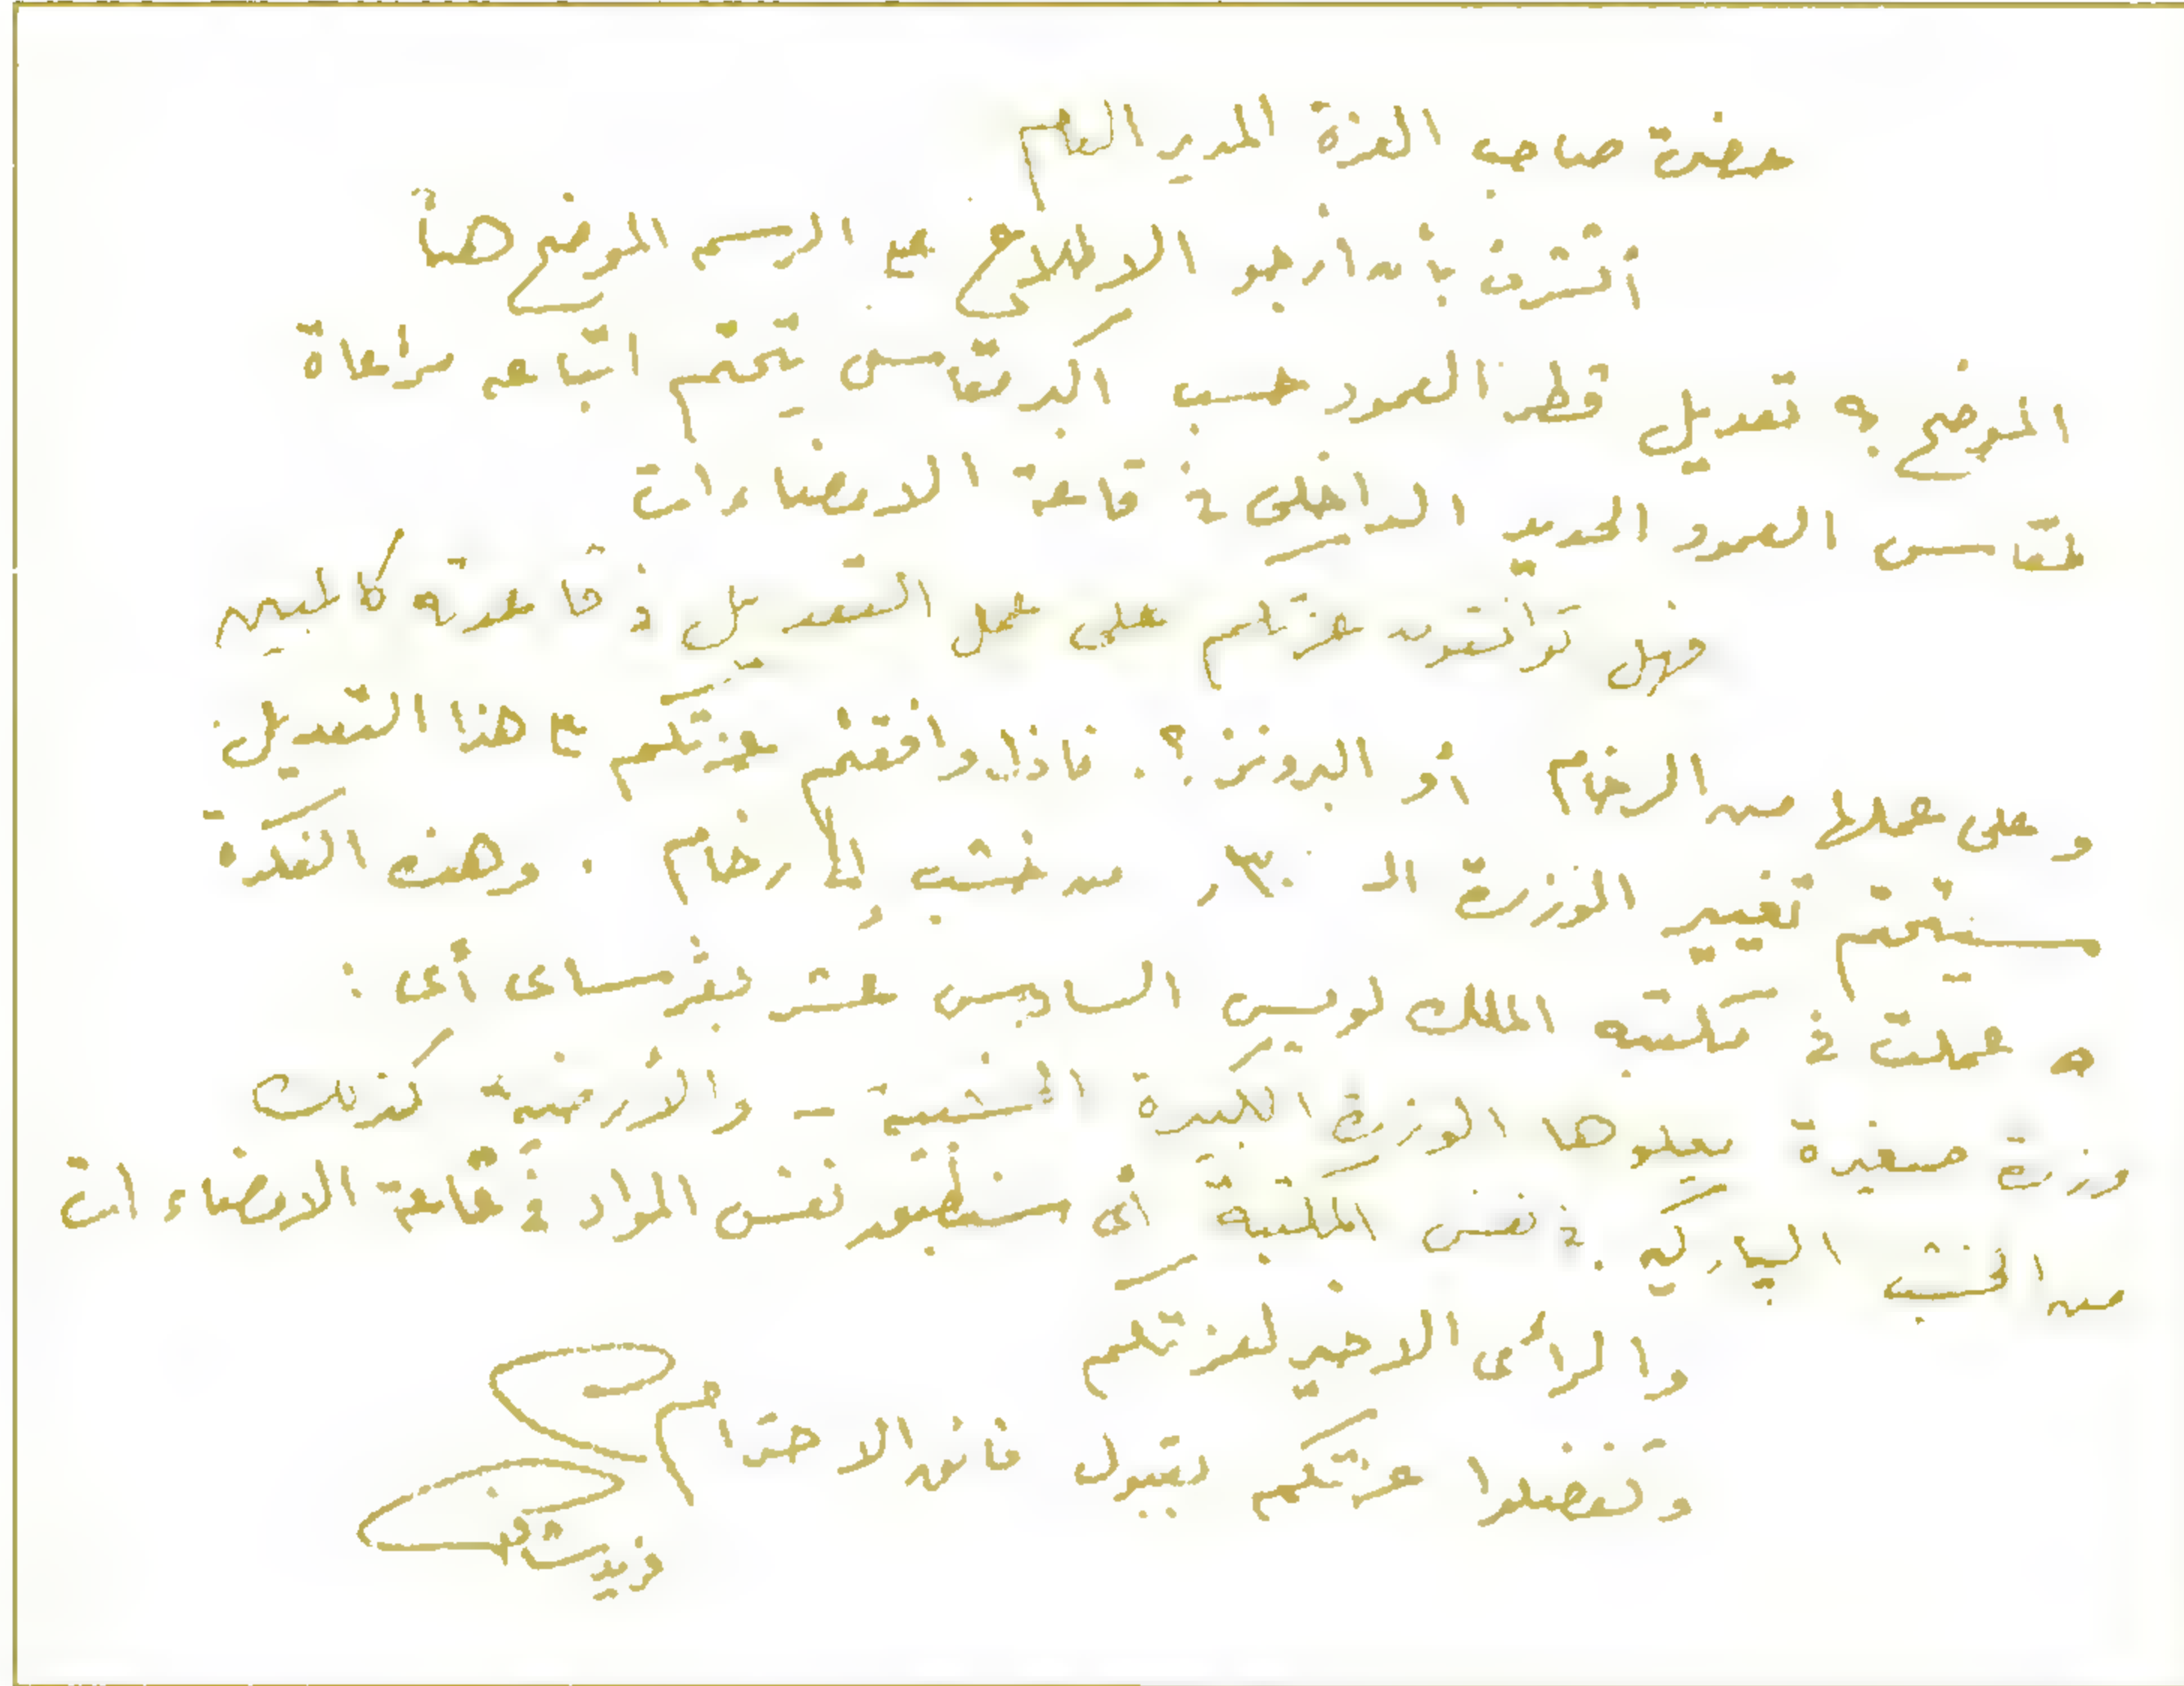 حضرة صاحب العزة المدير العام
أتشرف بأن أرجو الاطلاع على الرسم الموضح هنا
الموضح به تعديل قطر العمود حسب أكبر مقاس يتحتم اتباعه مراعاة
لمقاس العمود الحديد الداخلى فى قاعة الامضاءات
فهل توافقون عزتكم على عمل التعديل فى قاعدته كالمبين
وعلى عملها من الرخام أو البرونز؟. فاذا وافقتم عزتكم على هذا التعديل
سيتحتم تغيير الوزرة الـ ٣٠ر من خشب إلى رخام . وهذه الفكرة
عملت فى مكتبة الملك لويس السادس عشر بفرساى أى :
وزرة صغيرة يعلوها الوزرة الكبيرة الخشبية - والأرضية كذلك
من الخشب الباركيه . فى نفس المكتبة أى ستظهر نفس المواد فى قاعة الامضاءات
والرأى الاخير لعزتكم
وتفضلوا عزتكم بقبول فائق الاحترام